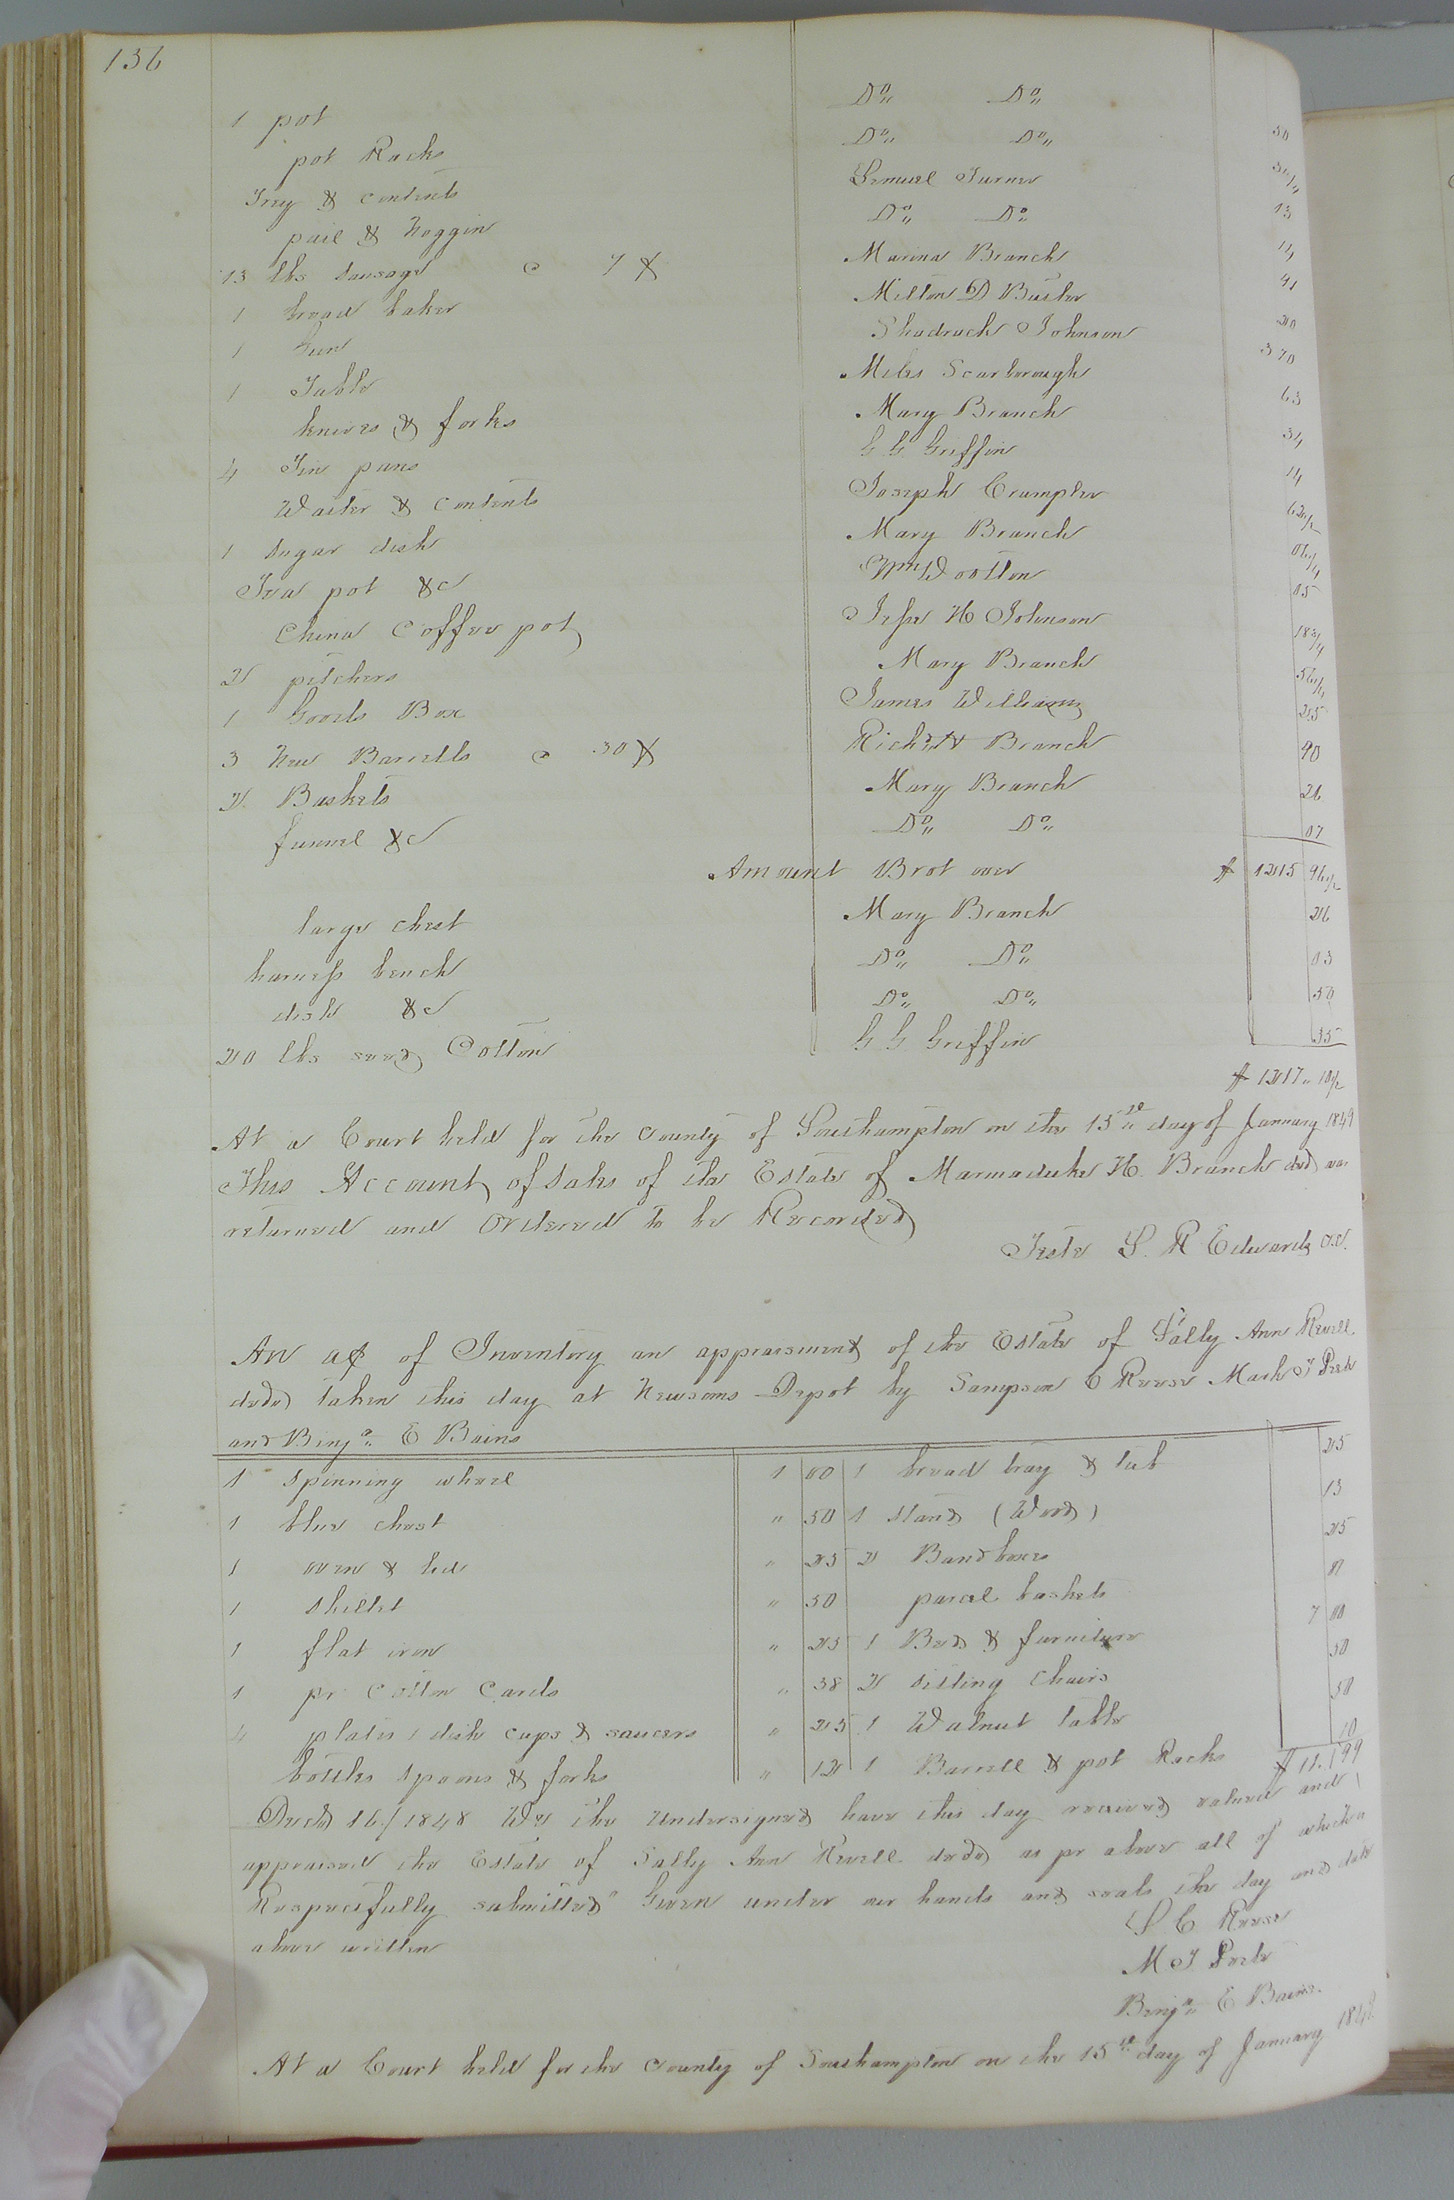 136
1 pot Do,, Do,,
pot Racks Do,, Do,, 30
Tray & contents Lemuel Turner 31 1/4
pail & Noggin Do,, Do,, 13
13 lbs Sausage @ 7 ¢ Marina Branch 14
1 bread baker Milton D Butler 91
1 Gun Shadrach Johnson 20
1 Table Miles Scarborough 3 70
knives & forks Mary Branch 63
4 Tin pans G G Griffin 34
Waiter & contents Joseph Crumpler 14
1 Sugar dish Mary Branch 62 1/2
Tea pot &c Wm Wootton 06 1/4
China Coffee pot Jesse H Johnson 05
2 pitchers Mary Branch 18 3/4
1 Goods Box James Williams 56 1/4
3 New Barrells @ 30 ¢ Richd H Branch 25
2 Baskets Mary Branch 90
funnel &c Do,, Do,, 26
07
Amount Brot over $ 1215 96 1/2
large chest Mary Branch 26
harness bench Do,, Do,, 03
dish &c Do,, Do,, 50
20 lbs seed Cotton G G Griffin 35
$ 1217,, 10 1/2
At a Court held for the County of Southampton on the 15th day of January 1849
This Account of Sales of the Estate of Marmaduke H. Branch decd was
returned and Ordered to be Recorded
Teste L. R Edwards C.C.
An a/c of Inventory an appraisment of the Estate of Sally Ann Revell
decd taken this day at Newsoms Depot by Sampson C Reese Mark T Peete
and Benja,, E Bains
1 Spinning wheel 1 00 1 bread tray & tub 25
1 blue chest " 50 1 stand (Wood) 13
1 oven & lid " 25 2 Bandboxes 25
1 Skillet " 50 parcel baskets 01
1 flat iron " 25 1 Bed & furniture 7 00
1 pr Cotton Cards " 38 2 sitting Chairs 50
4 plates 1 dish cups & saucers " 25 1 Walnut Table 50
bottles Spoons & forks " 12 1 Barrell & pot Racks 10
$ 11.99
Decd 16/1848 We the undersigned have this day received valued and
appraised the Estate of Sally Ann Revell decd as pr above all of which is
Respectfully submitted" Given under our hands and seals the day and date
above written
S C Reese
M T Peete
Benja,, E Bains
At a Court held for the County of Southampton on the 15th day of January 1849